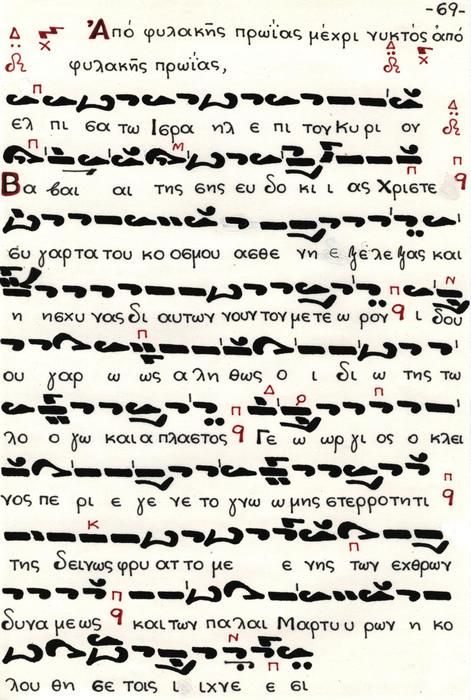 -69-
Ἀπό φυλακῆς πρωΐας μέχρι νυκτὸς ἀπό
φυλακῆς πρωΐας,
ελ πι σα τω Ισρα ηλ ε πι τον Κυ ρι ον
Βα βαι αι της σης ευ δο κι ι ας Χριστε
συ γαρ τα του κο οσμου ασθε νη ε ξε λε ξας και
η ησχυ νας δι αυτων νουν τον με τε ω ρον ι δου
ου γαρ ω ως α λη θως ο ι δι ω της τω
λο ο γω και α πλαστος Γε ω ωρ γι ος ο κλει
νος πε ρι ε γε νε το γνω ω μης στερροτητι
της δεινως φρυ ατ το με ε νης των εχθρων
δυνα με ως και των παλαι Μαρτυ υ ρων η κο
λου θη σε τοις ι ιχνε ε σι